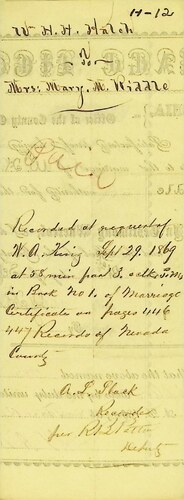 H-12
W. H. H. Hatch
&
Mrs. Mary. M. Widdle
Recorded at request of
W. A. King Sept 29. 1869
at 58 min past 3. oclk P.M.
in Book No 1. of Marriage
Certificate on pages 446
447 Records of Nevada
County
Recorder
per
Deputy